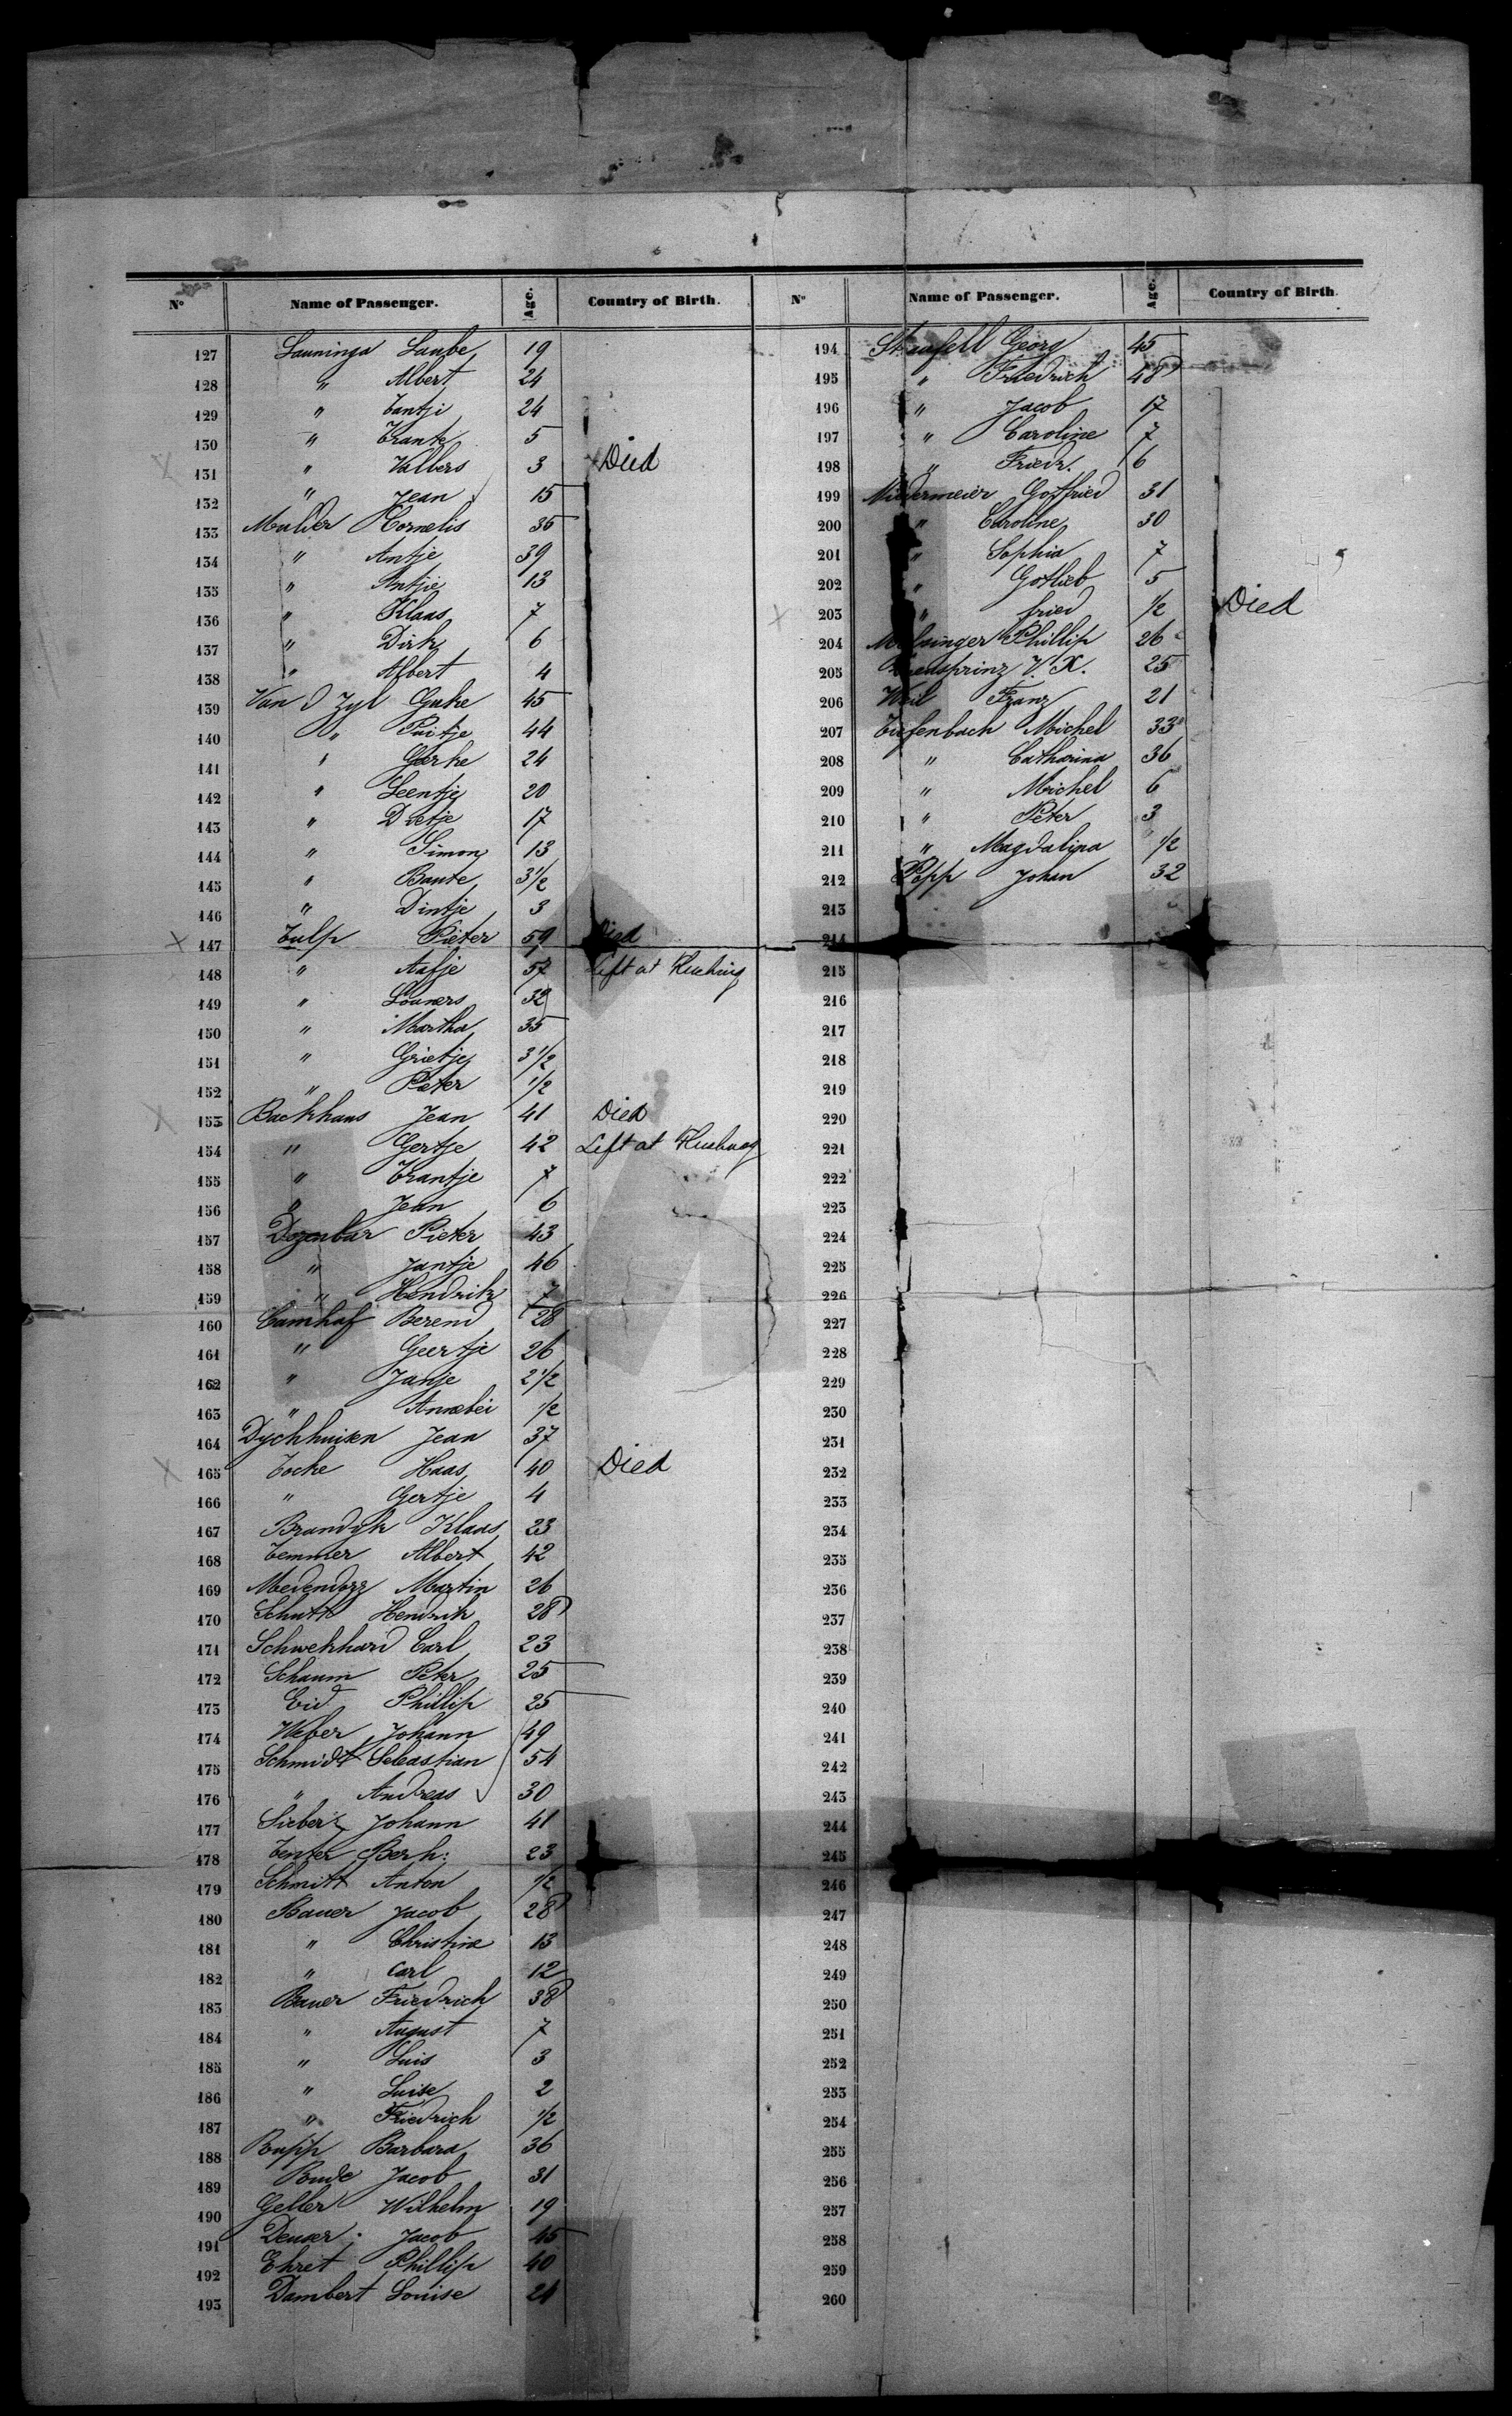 Nº Name of Passenger. Age. Country of Birth.
127 Launinga Laube 19
128 " Albert 24
129 " Tantji 24
130 " Trante 5
131 " Valbers 3 Died
132 " Jean 15
133 Mulder Kornelis 35
134 " Antje 39
135 " Antje 13
136 " Klaas 7
137 " Dirk 6
138 " Albert 4
139 Van d Zyl Geeke 45
140 " Paitje 44
141 " Gerke 24
142 " Leentje 20
143 " Dietje 17
144 " Simon 13
145 " Baute 3 1/2
146 " Dintje 3
147 Tulp Pieter 59 Died
148 " Aafje 57 Left at Flushing
149 " Louwers 32
150 " Martha 35
151 " Grietje 3 1/2
152 " Pieter 1/2
153 Backhaus Jean 41 Died
154 " Gertje 42 Left at Flushing
155 " Trantje 7
156 " Jean 6
157 Dozenbar Pieter 43
158 " Jantje 46
159 " Hendrik 7
160 Camhaf Berend 28
161 " Geertje 26
162 " Janje 2 1/2
163 " Annebei 1/2
164 Dyckhuisen Jean 37
165 Tocke Haas 40 Died
166 " Gertje 4
167 Brandyk Klaas 23
168 Temmer Albert 42
169 Medendorp Martin 26
170 Schutt Hendrik 28
171 Schwekhard Carl 23
172 Schaum Peter 25
173 Eid Phillip 25
174 Weber Johann 49
175 Schmidt Sebastian 54
176 " Andreas 30
177 Sieber Johann 41
178 Tenter Berh: 23
179 Schmitt Anton 1/2
180 Bauer Jacob 28
181 " Christine 13
182 " Carl 12
183 Bauer Friedrich 38
184 " August 7
185 " Luis 3
186 " Luise 2
187 " Friedrich 1/2
188 Bupp Barbara 36
189 Bude Jacob 31
190 Geller Wilhelm 19
191 Denser Jacob 45
192 Ehret Phillip 40
193 Dambert Louise 21
Nº Name of Passenger. Age. Country of Birth.
194 Georg 45
195 " Friedrich 48
196 " Jacob 17
197 " Caroline 7
198 " Friedr. 6
199 Gotfried 31
200 " Caroline 30
201 " Sophia 7
202 " Gotlieb 5
203 " fried 1/2 Died
204 Phillip 26
205 V. X. 25
206 Weil Franz 21
207 Tiefenbach Michel 33
208 " Catharina 36
209 " Michel 6
210 " Peter 3
211 " Magdalina 1/2
212 Popp Johan 32
213
214
215
216
217
218
219
220
221
222
223
224
225
226
227
228
229
230
231
232
233
234
235
236
237
238
239
240
241
242
243
244
245
246
247
248
249
250
251
252
253
254
255
256
257
258
259
260